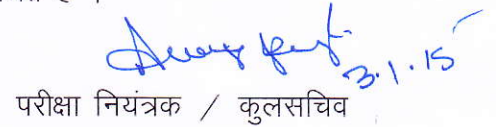 3.1.15
परीक्षा नियंत्रक / कुलसचिव